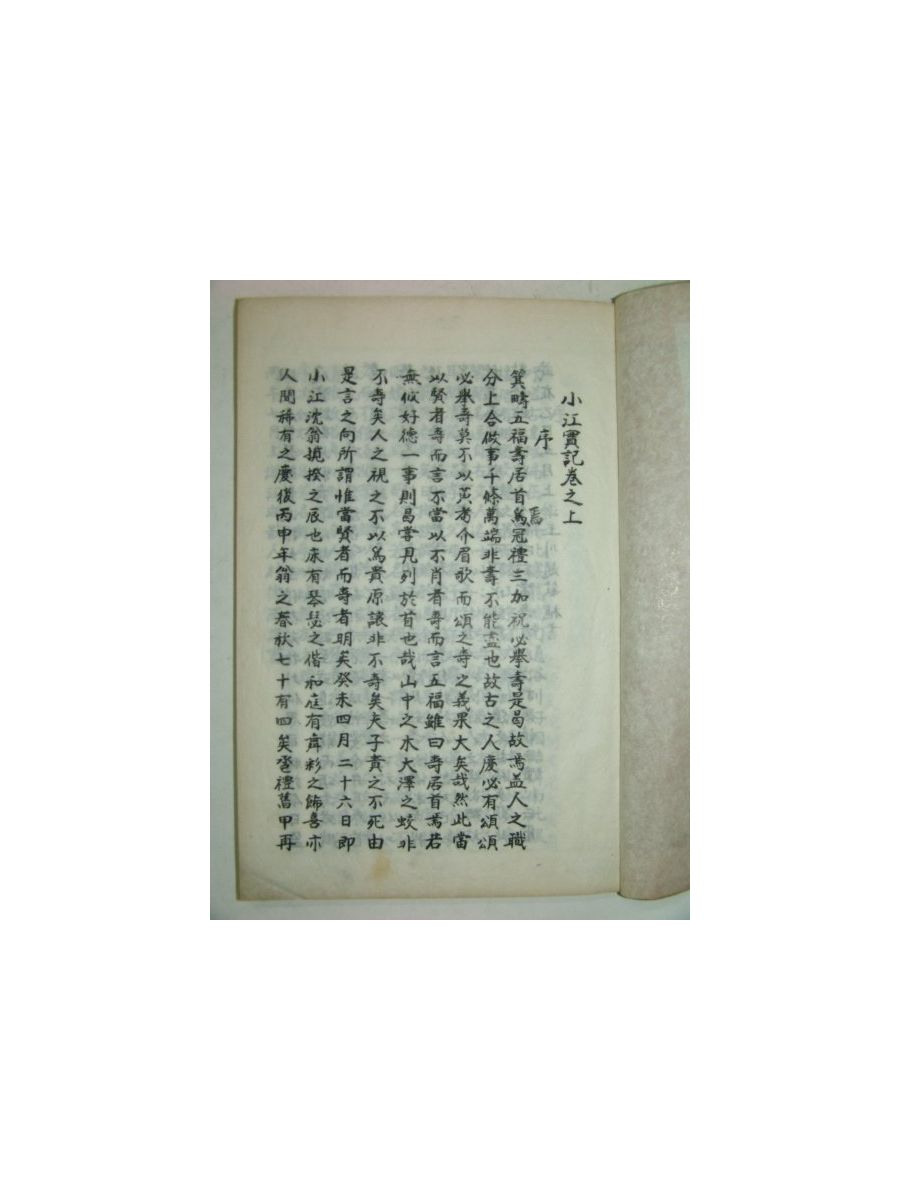 小江實記卷之上
序
箕疇五福壽居首焉冠禮三加祝必擧壽是曷故焉益人之職
分上合做事千條萬端非壽不能盡也故古之人慶必有頌頌
必擧壽莫不以黃耇介眉歌而頌之壽之義果大矣哉然此當
以賢者壽而言不當以不肖者壽而言五福雖曰壽居首焉若
無攸好德一事則曷嘗見列於首也哉山中之木大澤之蛟非
不壽矣人之視之不以爲貴原讓非不壽矣夫子責之不死由
是言之向所謂惟當賢者而壽者明矣癸未四月二十六日即
小江沈翁
之辰也床有琴瑟之偕和庭有舞彩之飾喜亦
人間稀有之慶後丙申年翁之春秋七十有四矣巹禮舊甲再